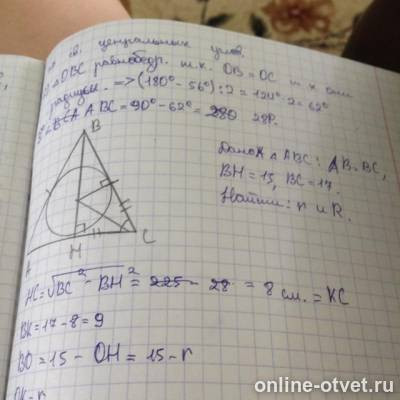 центральных углов.
△OBC равнобедр. т.к. OB = OC т к они
радиусы. => (180° - 56°) : 2 = 124° : 2 = 62°
ABC = 90° - 62° = 280 28°.
B
Дано: △ABC: AB=BC,
BH = 15, BC = 17.
Найти: r и R.
K
C
H
A
HC = √BC² - BH² = 225 - 28 = 8 см. = KC
BK = 17 - 8 = 9
BO = 15 - OH = 15 - r
OK = r
online-otvet.ru